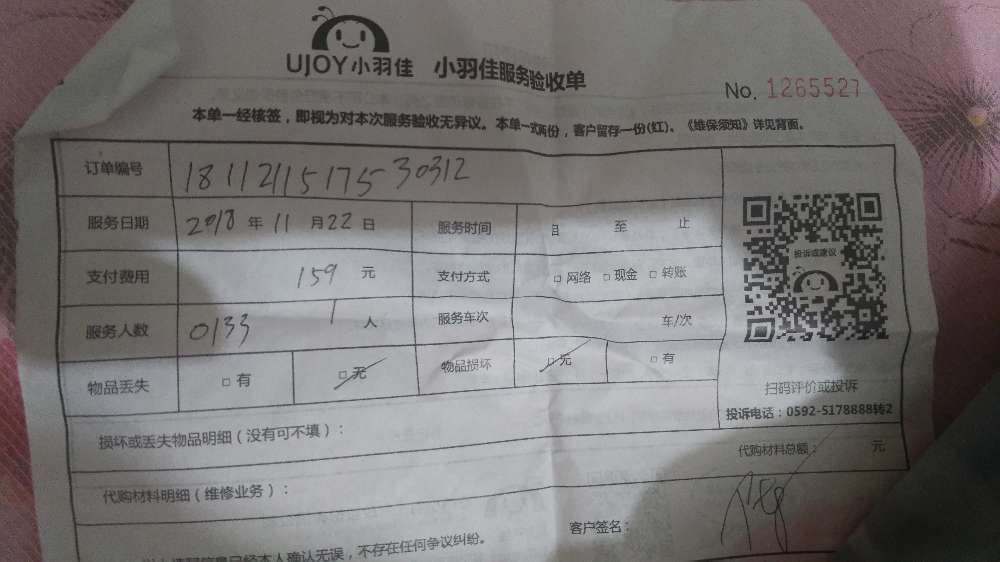 UJOY小羽佳 小羽佳服务验收单
No. 1265527
本单一经核签，即视为对本次服务验收无异议。本单一式两份，客户留存一份(红)。《维保须知》详见背面。
订单编号 1811211517530312
服务日期 2018 年 11 月 22 日 服务时间 自 至 止
投诉或建议
支付费用 159 元 支付方式 □ 网络 □ 现金 □ 转账
服务人数 0133 1 人 服务车次 车/次
物品丢失 □ 有 □ 无 物品损坏 □ 无 □ 有
扫码评价或投诉
投诉电话：0592-5178888转2
损坏或丢失物品明细（没有可不填）：
代购材料总额： 元
代购材料明细（维修业务）：
客户签名：
已经本人确认无误，不存在任何争议纠纷。